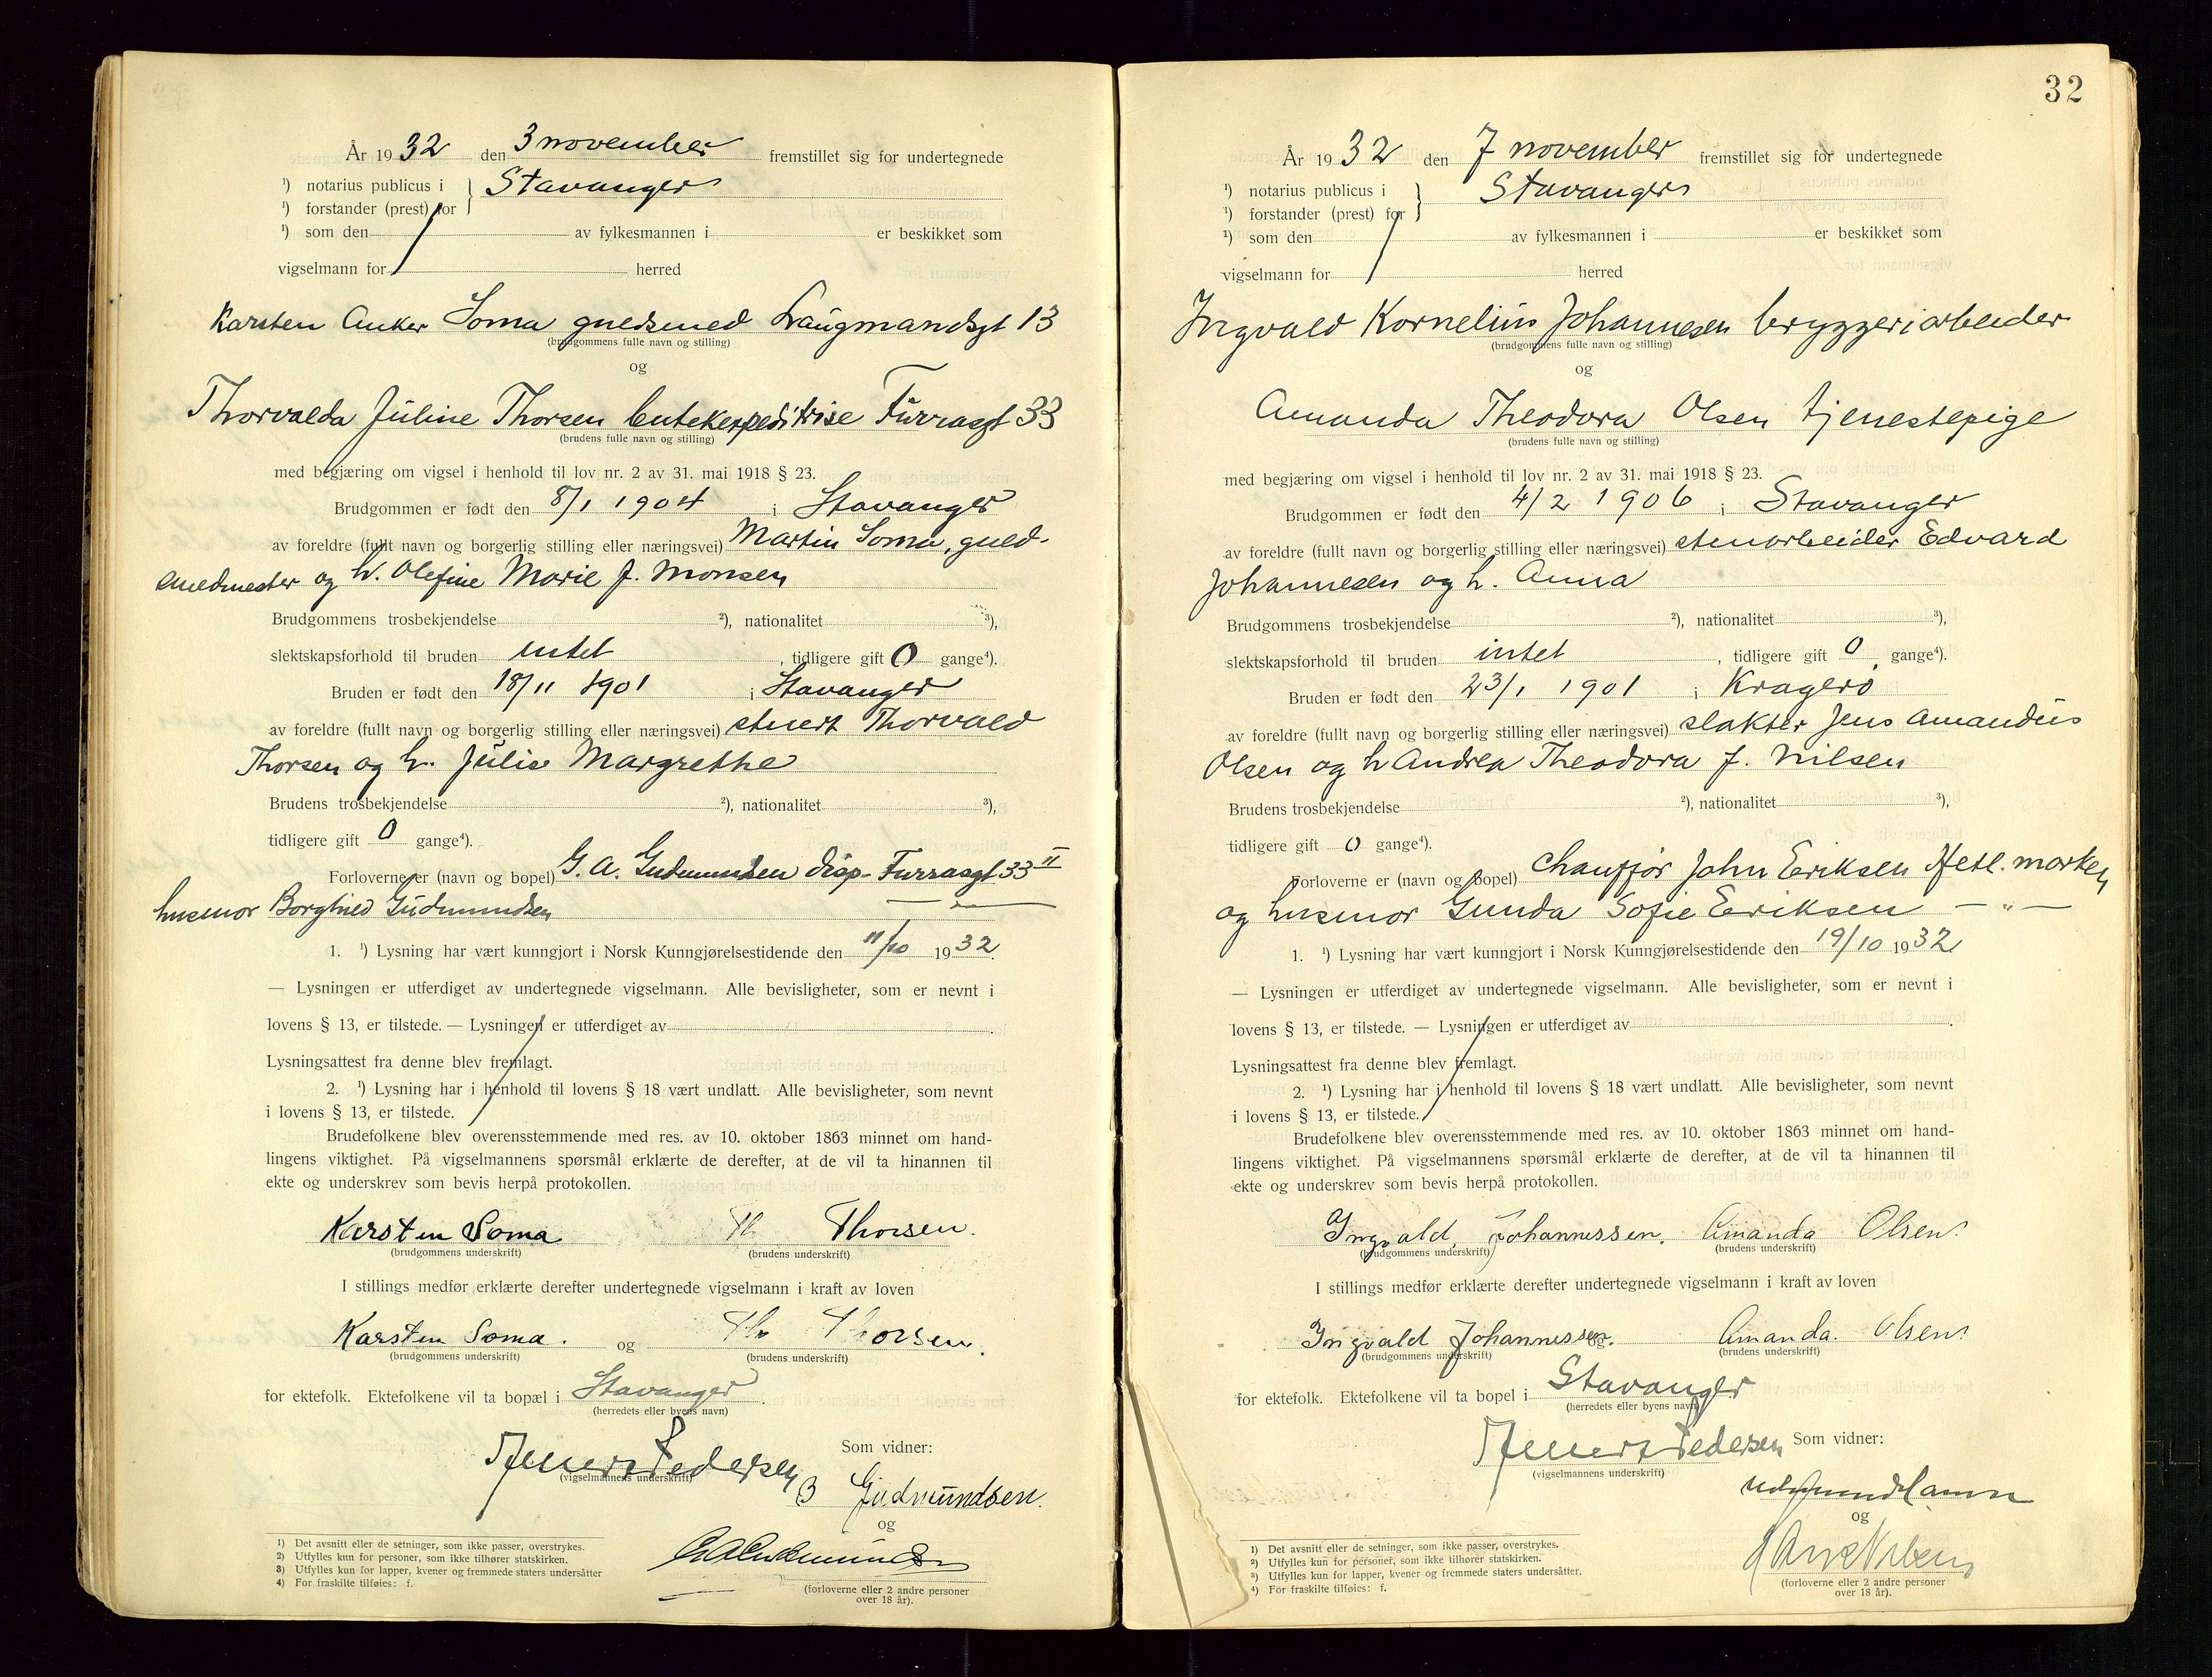 År 1932 den 3 november fremstillet sig for undertegnede
¹) notarius publicus i } Stavanger
¹) forstander (prest) for
¹) som den av fylkesmannen i er beskikket som
vigselmann for herred
Karsten Anker Soma guldsmed Laugmandsgt 13
(brudgommens fulle navn og stilling)
og
Thorvalda Juline Thorsen butekexpeditrise Furrasgt 33
(brudens fulle navn og stilling)
med begjæring om vigsel i henhold til lov nr. 2 av 31. mai 1918 § 23.
Brudgommen er født den 8/1 1904 i Stavanger
av foreldre (fullt navn og borgerlig stilling eller næringsvei) Martin Soma, guld-
smedmester og h. Olefine Marie f. Monsen
Brudgommens trosbekjendelse ²), nationalitet ³),
slektskapsforhold til bruden intet , tidligere gift 0 gange⁴).
Bruden er født den 18/11 1901 i Stavanger
av foreldre (fullt navn og borgerlig stilling eller næringsvei) stuert Thorvald
Thorsen og h. Julie Margrethe
Brudens trosbekjendelse ²), nationalitet ³),
tidligere gift 0 gange⁴).
Forloverne er (navn og bopel) G. A. Gudmundsen disp. Furrasgt 33 II
husmor Borghild Gudmundsen — " —
1. ¹) Lysning har vært kunngjort i Norsk Kunngjørelsestidende den 11/10 1932.
— Lysningen er utferdiget av undertegnede vigselmann. Alle bevisligheter, som er nevnt i
lovens § 13, er tilstede. — Lysningen er utferdiget av .
Lysningsattest fra denne blev fremlagt.
2. ¹) Lysning har i henhold til lovens § 18 vært undlatt. Alle bevisligheter, som nevnt
i lovens § 13, er tilstede.
Brudefolkene blev overensstemmende med res. av 10. oktober 1863 minnet om hand-
lingens viktighet. På vigselmannens spørsmål erklærte de derefter, at de vil ta hinannen til
ekte og underskrev som bevis herpå protokollen.
Karsten Soma Th Thorsen.
(brudgommens underskrift) (brudens underskrift)
I stillings medfør erklærte derefter undertegnede vigselmann i kraft av loven
Karsten Soma. og Th Thorsen.
(brudgommens underskrift) (brudens underskrift)
for ektefolk. Ektefolkene vil ta bopæl i Stavanger .
(herredets eller byens navn)
Som vidner:
Pedersen
(vigselmannens underskrift)
B Gudmundsen.
og
GAGudmundsen
(forloverne eller 2 andre personer
over 18 år).
1) Det avsnitt eller de setninger, som ikke passer, overstrykes.
2) Utfylles kun for personer, som ikke tilhører statskirken.
3) Utfylles kun for lapper, kvener og fremmede staters undersåtter
4) For fraskilte tilføies: f.
32
År 1932 den 7 november fremstillet sig for undertegnede
¹) notarius publicus i } Stavanger
¹) forstander (prest) for
¹) som den av fylkesmannen i er beskikket som
vigselmann for herred
Ingvald Kornelius Johannesen bryggeriarbeider
(brudgommens fulle navn og stilling)
og
Amanda Theodora Olsen tjenestepige
(brudens fulle navn og stilling)
med begjæring om vigsel i henhold til lov nr. 2 av 31. mai 1918 § 23.
Brudgommen er født den 4/2 1906 i Stavanger
av foreldre (fullt navn og borgerlig stilling eller næringsvei) stenarbeider Edvard
Johannesen og h. Anna
Brudgommens trosbekjendelse ²), nationalitet ³),
slektskapsforhold til bruden intet , tidligere gift 0 gange⁴).
Bruden er født den 23/1 1901 i Kragerø
av foreldre (fullt navn og borgerlig stilling eller næringsvei) slakter Jens Amandus
Olsen og h Andrea Theodora f. Nilsen
Brudens trosbekjendelse ²), nationalitet ³),
tidligere gift 0 gange⁴).
Forloverne er (navn og bopel) chauffør John Eriksen Hetl. marken
og husmor Gunda Sofie Eriksen — " —
1. ¹) Lysning har vært kunngjort i Norsk Kunngjørelsestidende den 19/10 1932
— Lysningen er utferdiget av undertegnede vigselmann. Alle bevisligheter, som er nevnt i
lovens § 13, er tilstede. — Lysningen er utferdiget av .
Lysningsattest fra denne blev fremlagt.
2. ¹) Lysning har i henhold til lovens § 18 vært undlatt. Alle bevisligheter, som nevnt
i lovens § 13, er tilstede.
Brudefolkene blev overensstemmende med res. av 10. oktober 1863 minnet om hand-
lingens viktighet. På vigselmannens spørsmål erklærte de derefter, at de vil ta hinannen til
ekte og underskrev som bevis herpå protokollen.
Ingvald Johannessen. Amanda Olsen.
(brudgommens underskrift) (brudens underskrift)
I stillings medfør erklærte derefter undertegnede vigselmann i kraft av loven
Ingvald Johannessen. og Amanda. Olsen.
(brudgommens underskrift) (brudens underskrift)
for ektefolk. Ektefolkene vil ta bopel i Stavanger
(herredets eller byens navn)
Pedersen Som vidner:
(vigselmannens underskrift)
og
(forloverne eller 2 andre personer
over 18 år).
1) Det avsnitt eller de setninger, som ikke passer, overstrykes.
2) Utfylles kun for personer, som ikke tilhører statskirken.
3) Utfylles kun for lapper, kvener og fremmede staters undersåtter.
4) For fraskilte tilføies: f.